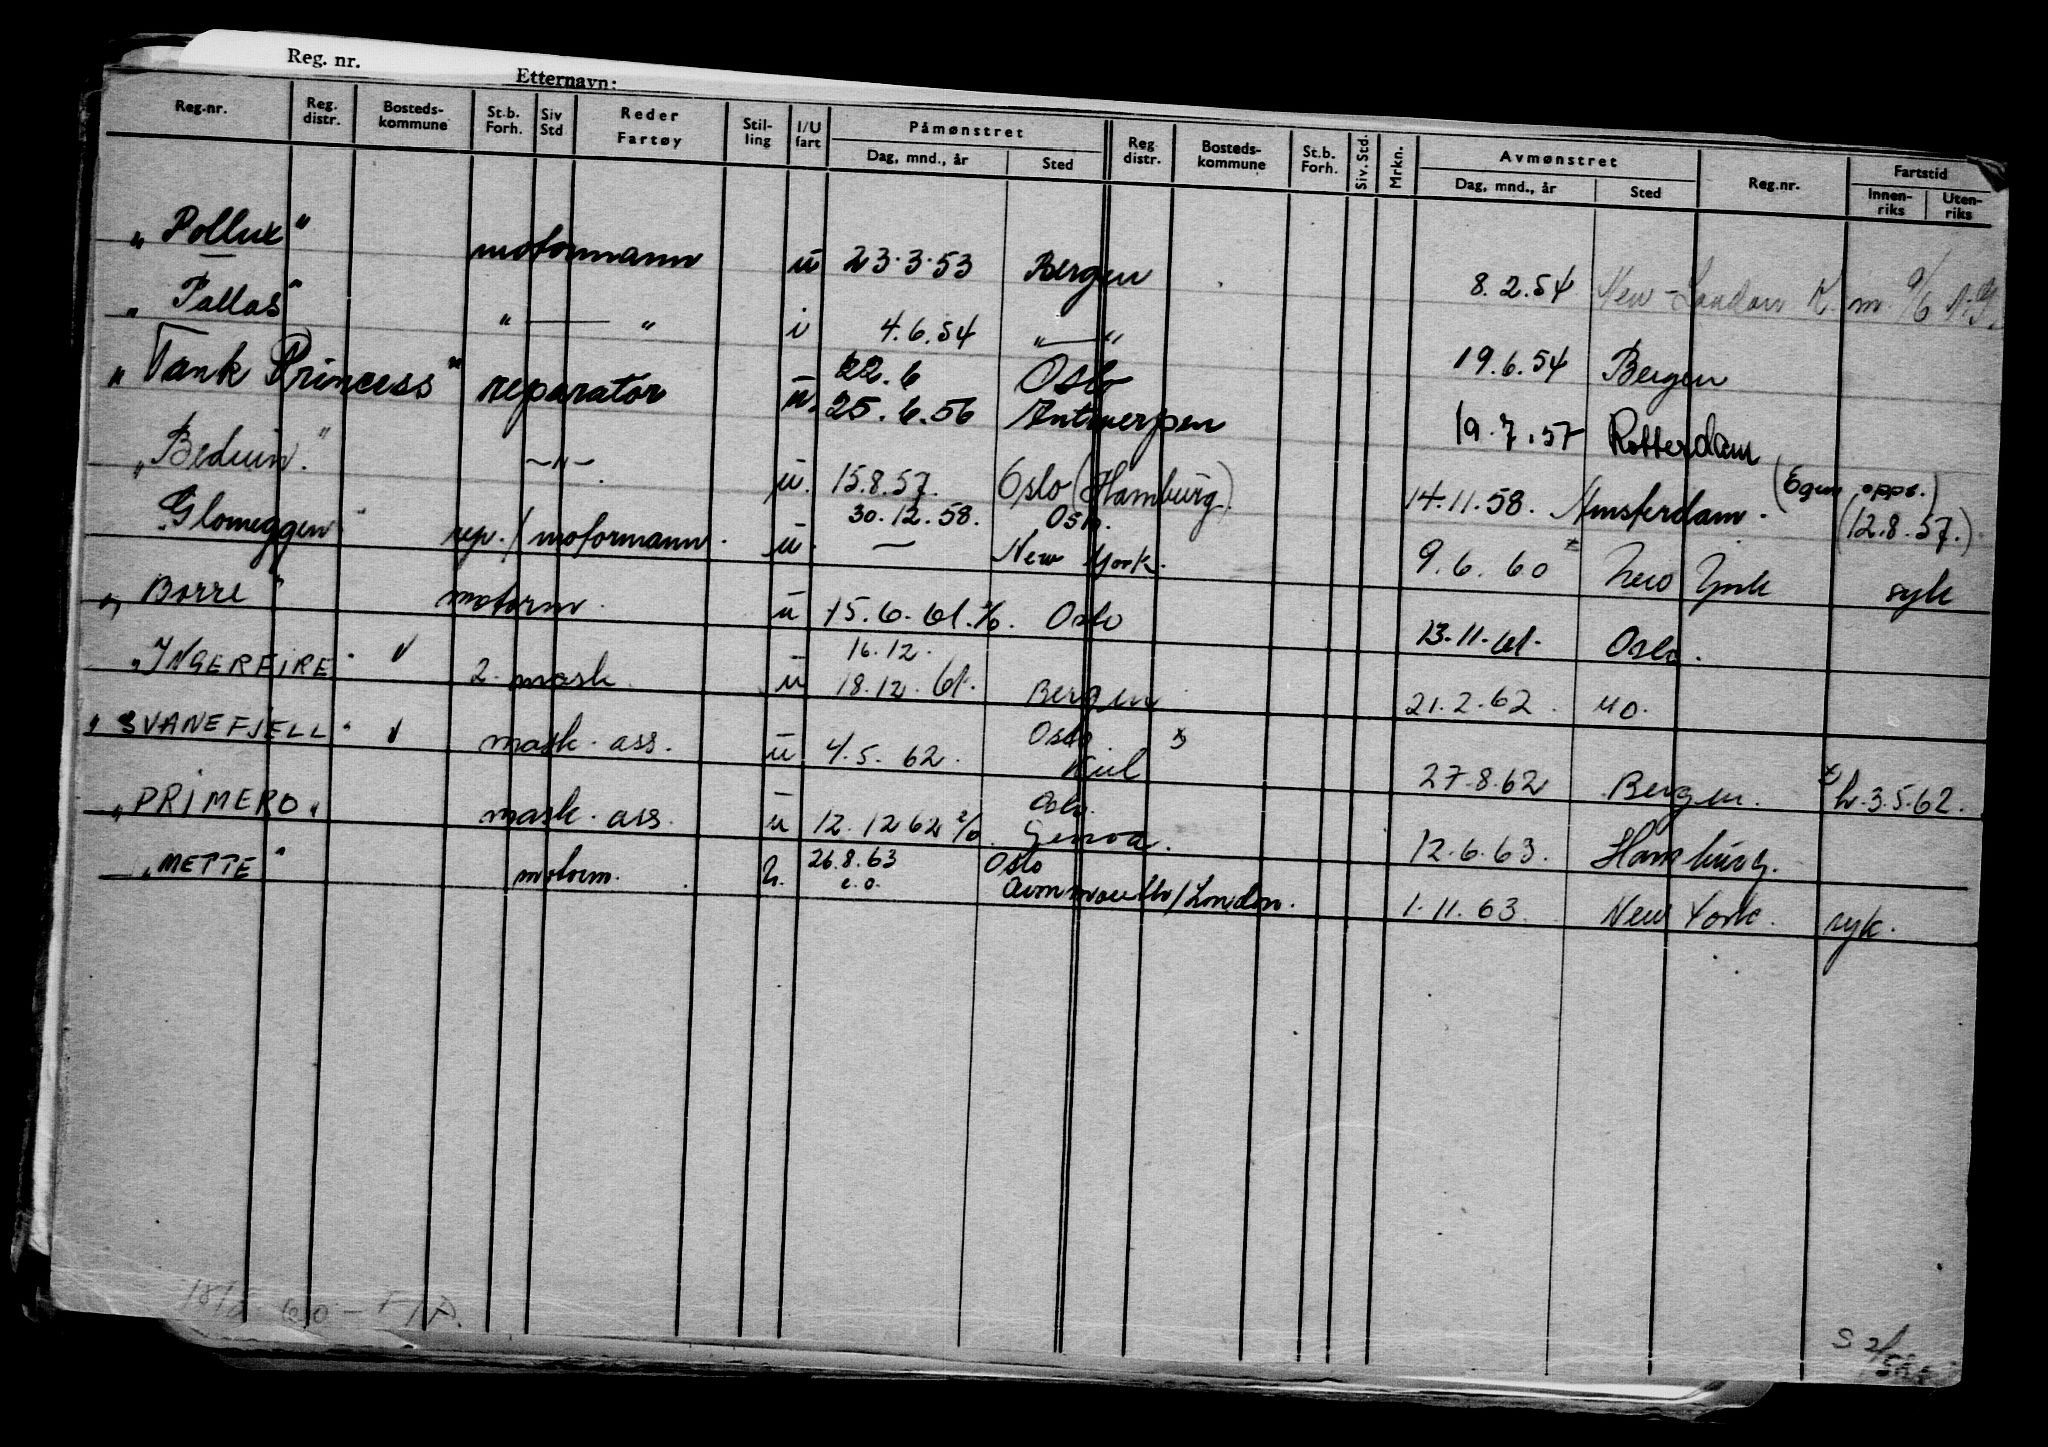 Reg. nr.
Etternavn:
Reg.nr. Reg. distr. Bosteds-kommune St.b. Forh. Siv Std Reder Fartøy Stil-ling I/U fart Påmønstret Dag, mnd., år Sted Reg distr. Bosteds-kommune St.b. Forh. Siv. Std. Mrkn. Avmønstret Dag, mnd., år Sted Reg.nr. Fartstid Innen-riks Uten-riks
"Pollux" motormann u 23.3.53 Bergen 8.2.54 New-London
"Pallas" " — " i 4.6.54 " — " 19.6.54 Bergen
"Tank Princess" reparatør u. 22.6 Oslo
25.6.56 Antwerpen 19.7.57 Rotterdam
"Beduin." —"— u. 15.8.57. Oslo (Hamburg) 14.11.58. Amsterdam. (Egen oppg.) (12.8.57.)
"Glomeggen" rep./motormann. u. 30.12.58. Oslo.
— New York. 9.6.60 New York syk
"Borre" motorm. u 15.6.61. Oslo 13.11.61. Oslo.
"INGEREIRE" v 2. mask. u 16.12.
18.12.61. Bergen 21.2.62. Mo.
"SVANEFJELL" v mask. ass. u 4.5.62. Oslo
Kiel 27.8.62 Bergen. h. 3.5.62.
"PRIMERO" mask. ass. u 12.12 62 Oslo.
Genoa. 12.6.63. Hamburg.
"METTE" motorm. u. 26.8.63 Oslo
e.o. Avonmouth/London. 1.11.63. New York. syk.